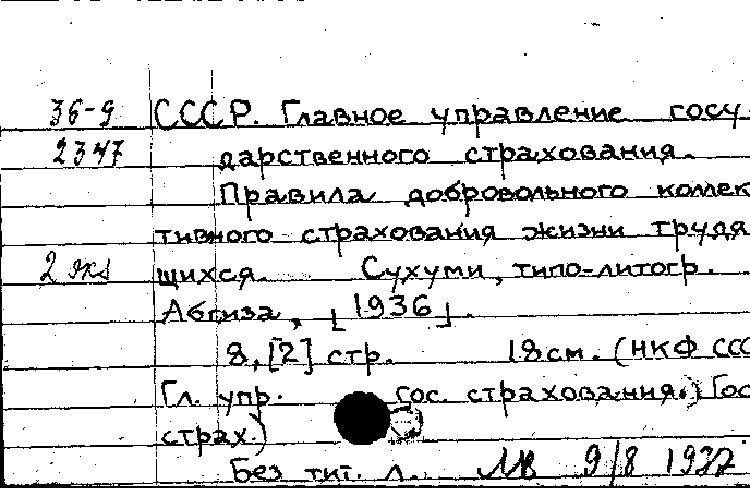 36-9 СССР. Главное управление госу-
2347 дарственного страхования.
Правила добровольного коллек-
тивного страхования жизни трудя-
2 экз щихся. Сухуми, типо-литогр.
Абгиза, [1936].
8, [2] стр. 18 см. (НКФ ССС
Гл. упр. гос. страхования.) Гос
страх.)
Без тит. л. 9/8 1937